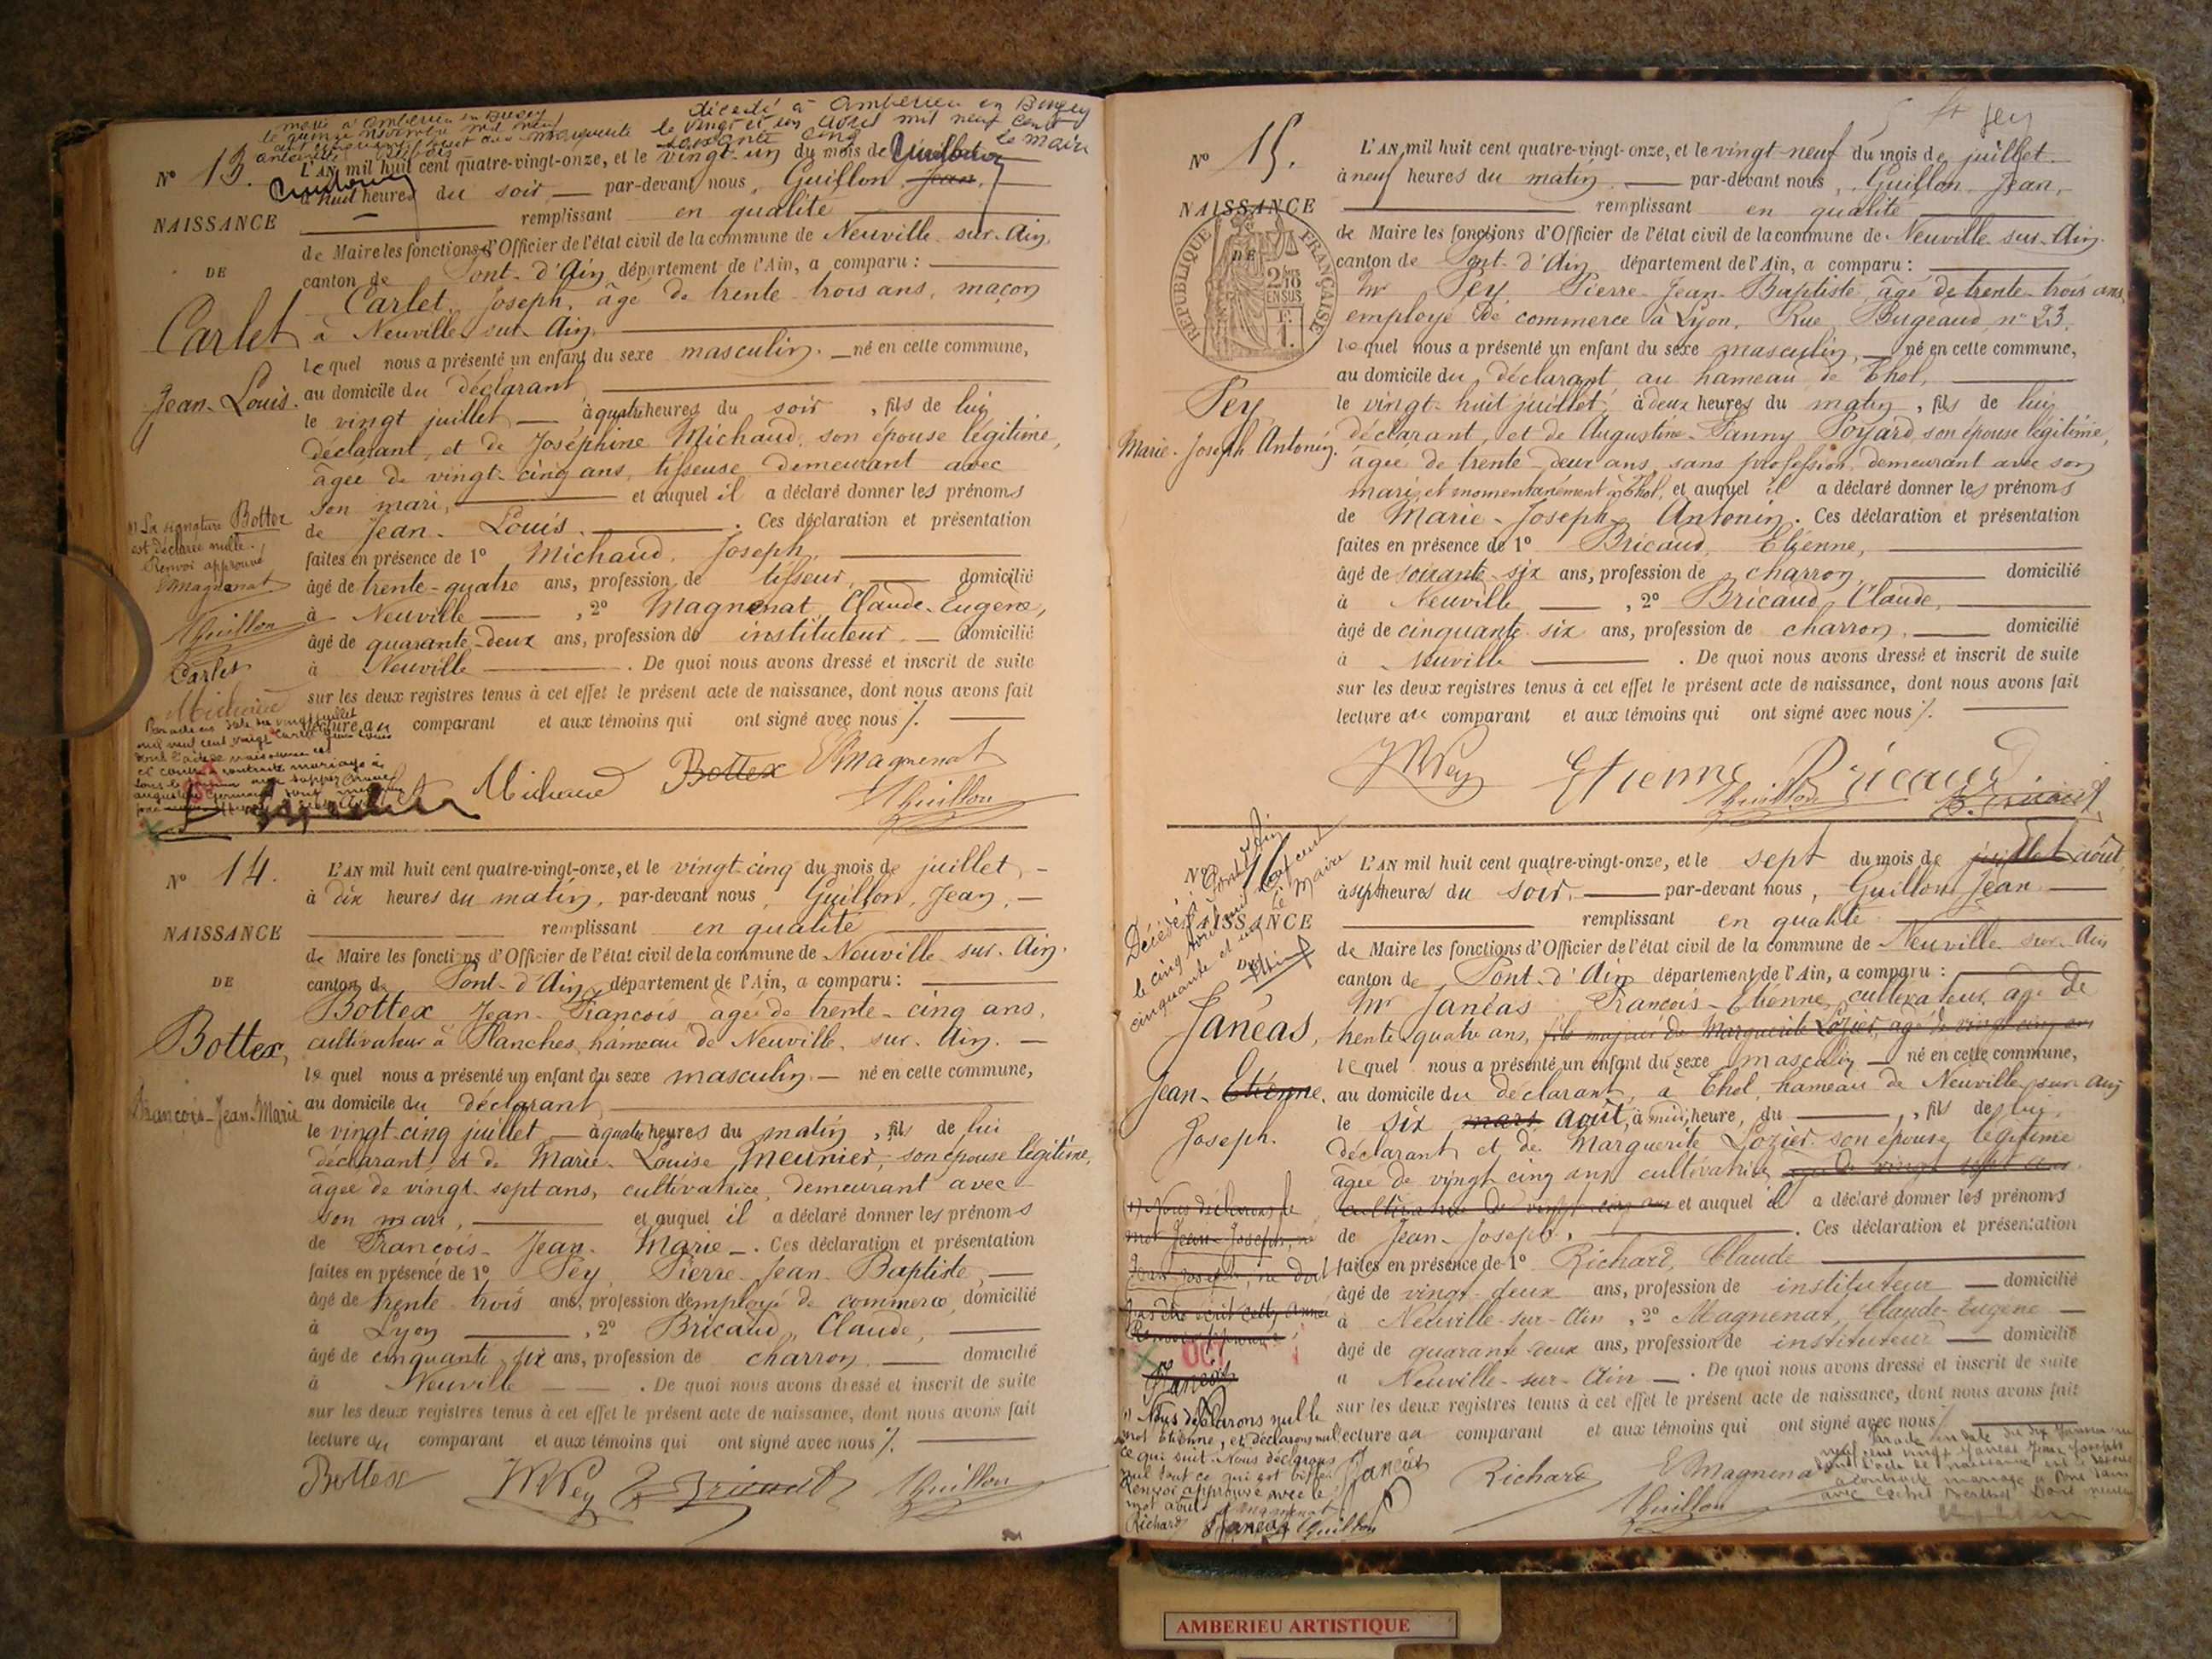 décédé à Ambérieu en Bugey
le vingt et un avril mil neuf cent
soixante cinq le maire
N° 13.
L'AN mil huit cent quatre-vingt-onze, et le vingt-un du mois de
à huit heures du soir par-devant nous, Guillon, Jean,
NAISSANCE
remplissant en qualité
de Maire les fonctions d'Officier de l'état civil de la commune de Neuville-sur-Ain,
DE
canton de Pont-d'Ain, département de l'Ain, a comparu :
Carlet, Joseph, âgé de trente-trois ans, maçon
Carlet
à Neuville-sur-Ain,
lequel nous a présenté un enfant du sexe masculin. né en cette commune,
Jean-Louis.
au domicile du déclarant,
le vingt juillet à quatre heures du soir, fils de lui
déclarant, et de Joséphine Michaud, son épouse légitime,
âgée de vingt-cinq ans, tisseuse demeurant avec
son mari, et auquel il a déclaré donner les prénoms
(1) La signature Bottex
est déclarée nulle.
Renvoi approuvé
EMagnenat
JGuillon
Carlet
Michaud
de Jean-Louis. Ces déclaration et présentation
faites en présence de 1° Michaud, Joseph,
âgé de trente-quatre ans, profession de tisseur, domicilié
à Neuville, 2° Magnenat, Claude-Eugène,
âgé de quarante-deux ans, profession de instituteur. domicilié
à Neuville. De quoi nous avons dressé et inscrit de suite
sur les deux registres tenus à cet effet le présent acte de naissance, dont nous avons fait
lecture au comparant et aux témoins qui ont signé avec nous ./.
Michaud Bottex EMagnenat
JGuillon
N° 14.
L'AN mil huit cent quatre-vingt-onze, et le vingt-cinq du mois de juillet,
à dix heures du matin, par-devant nous, Guillon, Jean,
NAISSANCE
remplissant en qualité
de Maire les fonctions d'Officier de l'état civil de la commune de Neuville-sur-Ain.
DE
canton de Pont-d'Ain, département de l'Ain, a comparu :
Bottex Jean-François âgé de trente-cinq ans,
Bottex,
cultivateur à Planches, hameau de Neuville-sur-Ain.
lequel nous a présenté un enfant du sexe masculin. né en cette commune,
François-Jean-Marie
au domicile du déclarant,
le vingt-cinq juillet à quatre heures du matin, fils de lui
déclarant, et de Marie-Louise Meunier, son épouse légitime,
âgée de vingt-sept ans, cultivatrice, demeurant avec
son mari, et auquel il a déclaré donner les prénoms
de François-Jean-Marie. Ces déclaration et présentation
faites en présence de 1° Pey, Pierre-Jean-Baptiste,
âgé de trente-trois ans, profession d'employé de commerce, domicilié
à Lyon, 2° Bricaud, Claude,
âgé de cinquante-six ans, profession de charron. domicilié
à Neuville. De quoi nous avons dressé et inscrit de suite
sur les deux registres tenus à cet effet le présent acte de naissance, dont nous avons fait
lecture au comparant et aux témoins qui ont signé avec nous ./.
Bottex JBPey Bricaud JGuillon
Pey
N° 15.
L'AN mil huit cent quatre-vingt-onze, et le vingt-neuf du mois de juillet.
à neuf heures du matin, par-devant nous, Guillon Jean,
NAISSANCE
remplissant en qualité
de Maire les fonctions d'Officier de l'état civil de la commune de Neuville-sur-Ain.
DE
canton de Pont-d'Ain département de l'Ain, a comparu :
RÉPUBLIQUE FRANÇAISE
2/10 EN SUS
Mr Pey, Pierre-Jean-Baptiste âgé de trente-trois ans,
employé de commerce à Lyon, Rue Bugeaud, n° 23,
lequel nous a présenté un enfant du sexe masculin, né en cette commune,
au domicile du déclarant au hameau de Thol,
Pey
Marie-Joseph Antonin.
le vingt-huit juillet, à deux heures du matin, fils de lui
déclarant, et de Augustine-Fanny Poyard, son épouse légitime,
âgée de trente-deux ans, sans profession, demeurant avec son
mari, et momentanément à Thol, et auquel il a déclaré donner les prénoms
de Marie-Joseph Antonin. Ces déclaration et présentation
faites en présence de 1° Bricaud, Etienne,
âgé de soixante-six ans, profession de charron, domicilié
à Neuville, 2° Bricaud, Claude,
âgé de cinquante-six ans, profession de charron, domicilié
à Neuville. De quoi nous avons dressé et inscrit de suite
sur les deux registres tenus à cet effet le présent acte de naissance, dont nous avons fait
lecture au comparant et aux témoins qui ont signé avec nous ./.
JBPey Etienne Bricaud
JGuillon Bricaud
N° 16
L'AN mil huit cent quatre-vingt-onze, et le sept du mois de juillet août
à sept heures du soir, par-devant nous, Guillon Jean
Décédé à Pont d'Ain
le cinq avril mil neuf cent
cinquante et un
Le Maire
NAISSANCE
remplissant en qualité
de Maire les fonctions d'Officier de l'état civil de la commune de Neuville-sur-Ain
canton de Pont-d'Ain département de l'Ain, a comparu :
Mr Janéas François-Etienne, cultivateur, âgé de
Janéas,
trente-quatre ans, fils majeur de Marguerite Lozier, âgé de vingt cinq ans
lequel nous a présenté un enfant du sexe masculin né en cette commune,
Jean-Etienne.
au domicile du déclarant, à Thol, hameau de Neuville-sur-Ain
le six mars août, à midi, heure, du, fils de lui,
Joseph.
déclarant et de Marguerite Lozier son épouse légitime
âgée de vingt cinq ans cultivatrice âgée de vingt sept ans
cultivatrice de vingt-cinq ans et auquel il a déclaré donner les prénoms
de Jean-Joseph. Ces déclaration et présentation
faites en présence de 1° Richard, Claude
âgé de vingt-deux ans, profession de instituteur domicilié
à Neuville-sur-Ain, 2° Magnenat, Claude-Eugène
âgé de quarante deux ans, profession de instituteur domicilié
à Neuville-sur-Ain. De quoi nous avons dressé et inscrit de suite
sur les deux registres tenus à cet effet le présent acte de naissance, dont nous avons fait
lecture au comparant et aux témoins qui ont signé avec nous ./.
1) Nous déclarons nul le
mot Etienne, et déclarons nul
ce qui suit. Nous déclarons
nul tout ce qui est biffé.
Renvoi approuvé avec le
mot août
Richard Magnenat
Janéas Guillon
Janéas Richard EMagnenat
JGuillon
AMBERIEU ARTISTIQUE